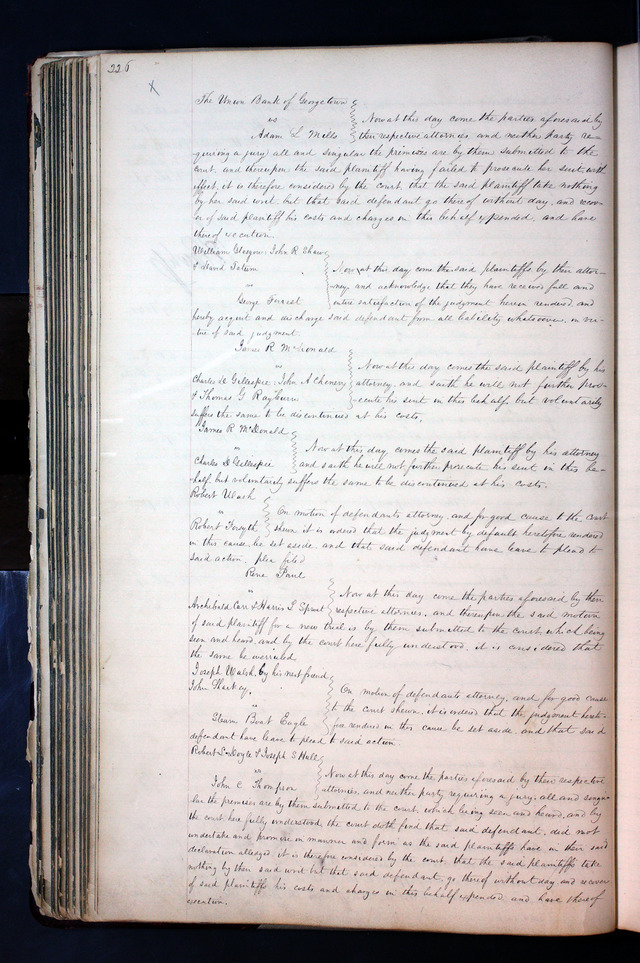 226
x
The Union Bank of Georgetown
vs
Adam L Mills
Now at this day come the parties aforesaid by
their respective attornies, and neither party re-
quiring a jury, all and singular the premises are by them submitted to the
court, and thereupon the said plaintiff having failed to prosecute her suit, with
effect, it is therefore considered by the court, that the said plaintiff take nothing
by her said writ, but that said defendant go thereof without day, and recov-
er of said plaintiff his costs and charges in this behalf expended, and have
thereof execution.
William Glasgow, John R Shaw
& David Tatum
"
George Forrest
Now at this day come the said plaintiffs by their attor-
ney, and acknowledge that they have received full and
entire satisfaction of the judgment herein rendered, and
hereby acquit and discharge said defendant from all liability whatsoever, in vir-
tue of said judgment.
James R McDonald
"
Charles D Gillespie, John A Chenery
& Thomas G Rayburn
Now at this day comes the said plaintiff by his
attorney, and saith he will not further pros-
ecute his suit in this behalf, but voluntarily
suffers the same to be discontinued at his costs.
James R McDonald
"
Charles D Gillespie
Now at this day, comes the said plaintiff by his attorney
and saith he will not further prosecute his suit in this be-
half, but voluntarily suffers the same to be discontinued at his costs.
Robert Walsh
"
Robert Forsyth
On motion of defendants attorney, and for good cause to the court
shewn, it is ordered that the judgment by default heretofore rendered
in this cause, be set aside, and that said defendant have leave to plead to
said action. plea filed
Rene Paul
"
Archibald Carr & Harris L Sprout
Now at this day come the parties aforesaid by their
respective attornies, and thereupon the said motion
of said plaintiff for a new trial is by them submitted to the court, which being
seen and heard, and by the court here fully understood, it is considered that
the same be overruled.
Joseph Walsh, by his next friend
John Sharkey,
"
Steam Boat Eagle
On motion of defendants attorney, and for good cause
to the court shewn, it is ordered that the judgment hereto-
fore rendered in this cause be set aside, and that said
defendant have leave to plead to said action.
Robert S Doyle & Joseph S Hull
"
John C Thompson
Now at this day come the parties aforesaid by their respective
attornies, and neither party requiring a jury, all and singu-
lar the premises are by them submitted to the court, which being seen and heard, and by
the court here fully understood, the court doth find that said defendant, did not
undertake and promise in manner and form as the said plaintiffs have in their said
declaration alledged, it is therefore considered by the court, that the said plaintiffs take
nothing by their said writ, but that said defendant, go thereof without day and recover
of said plaintiffs his costs and charges in this behalf expended, and have thereof
execution.